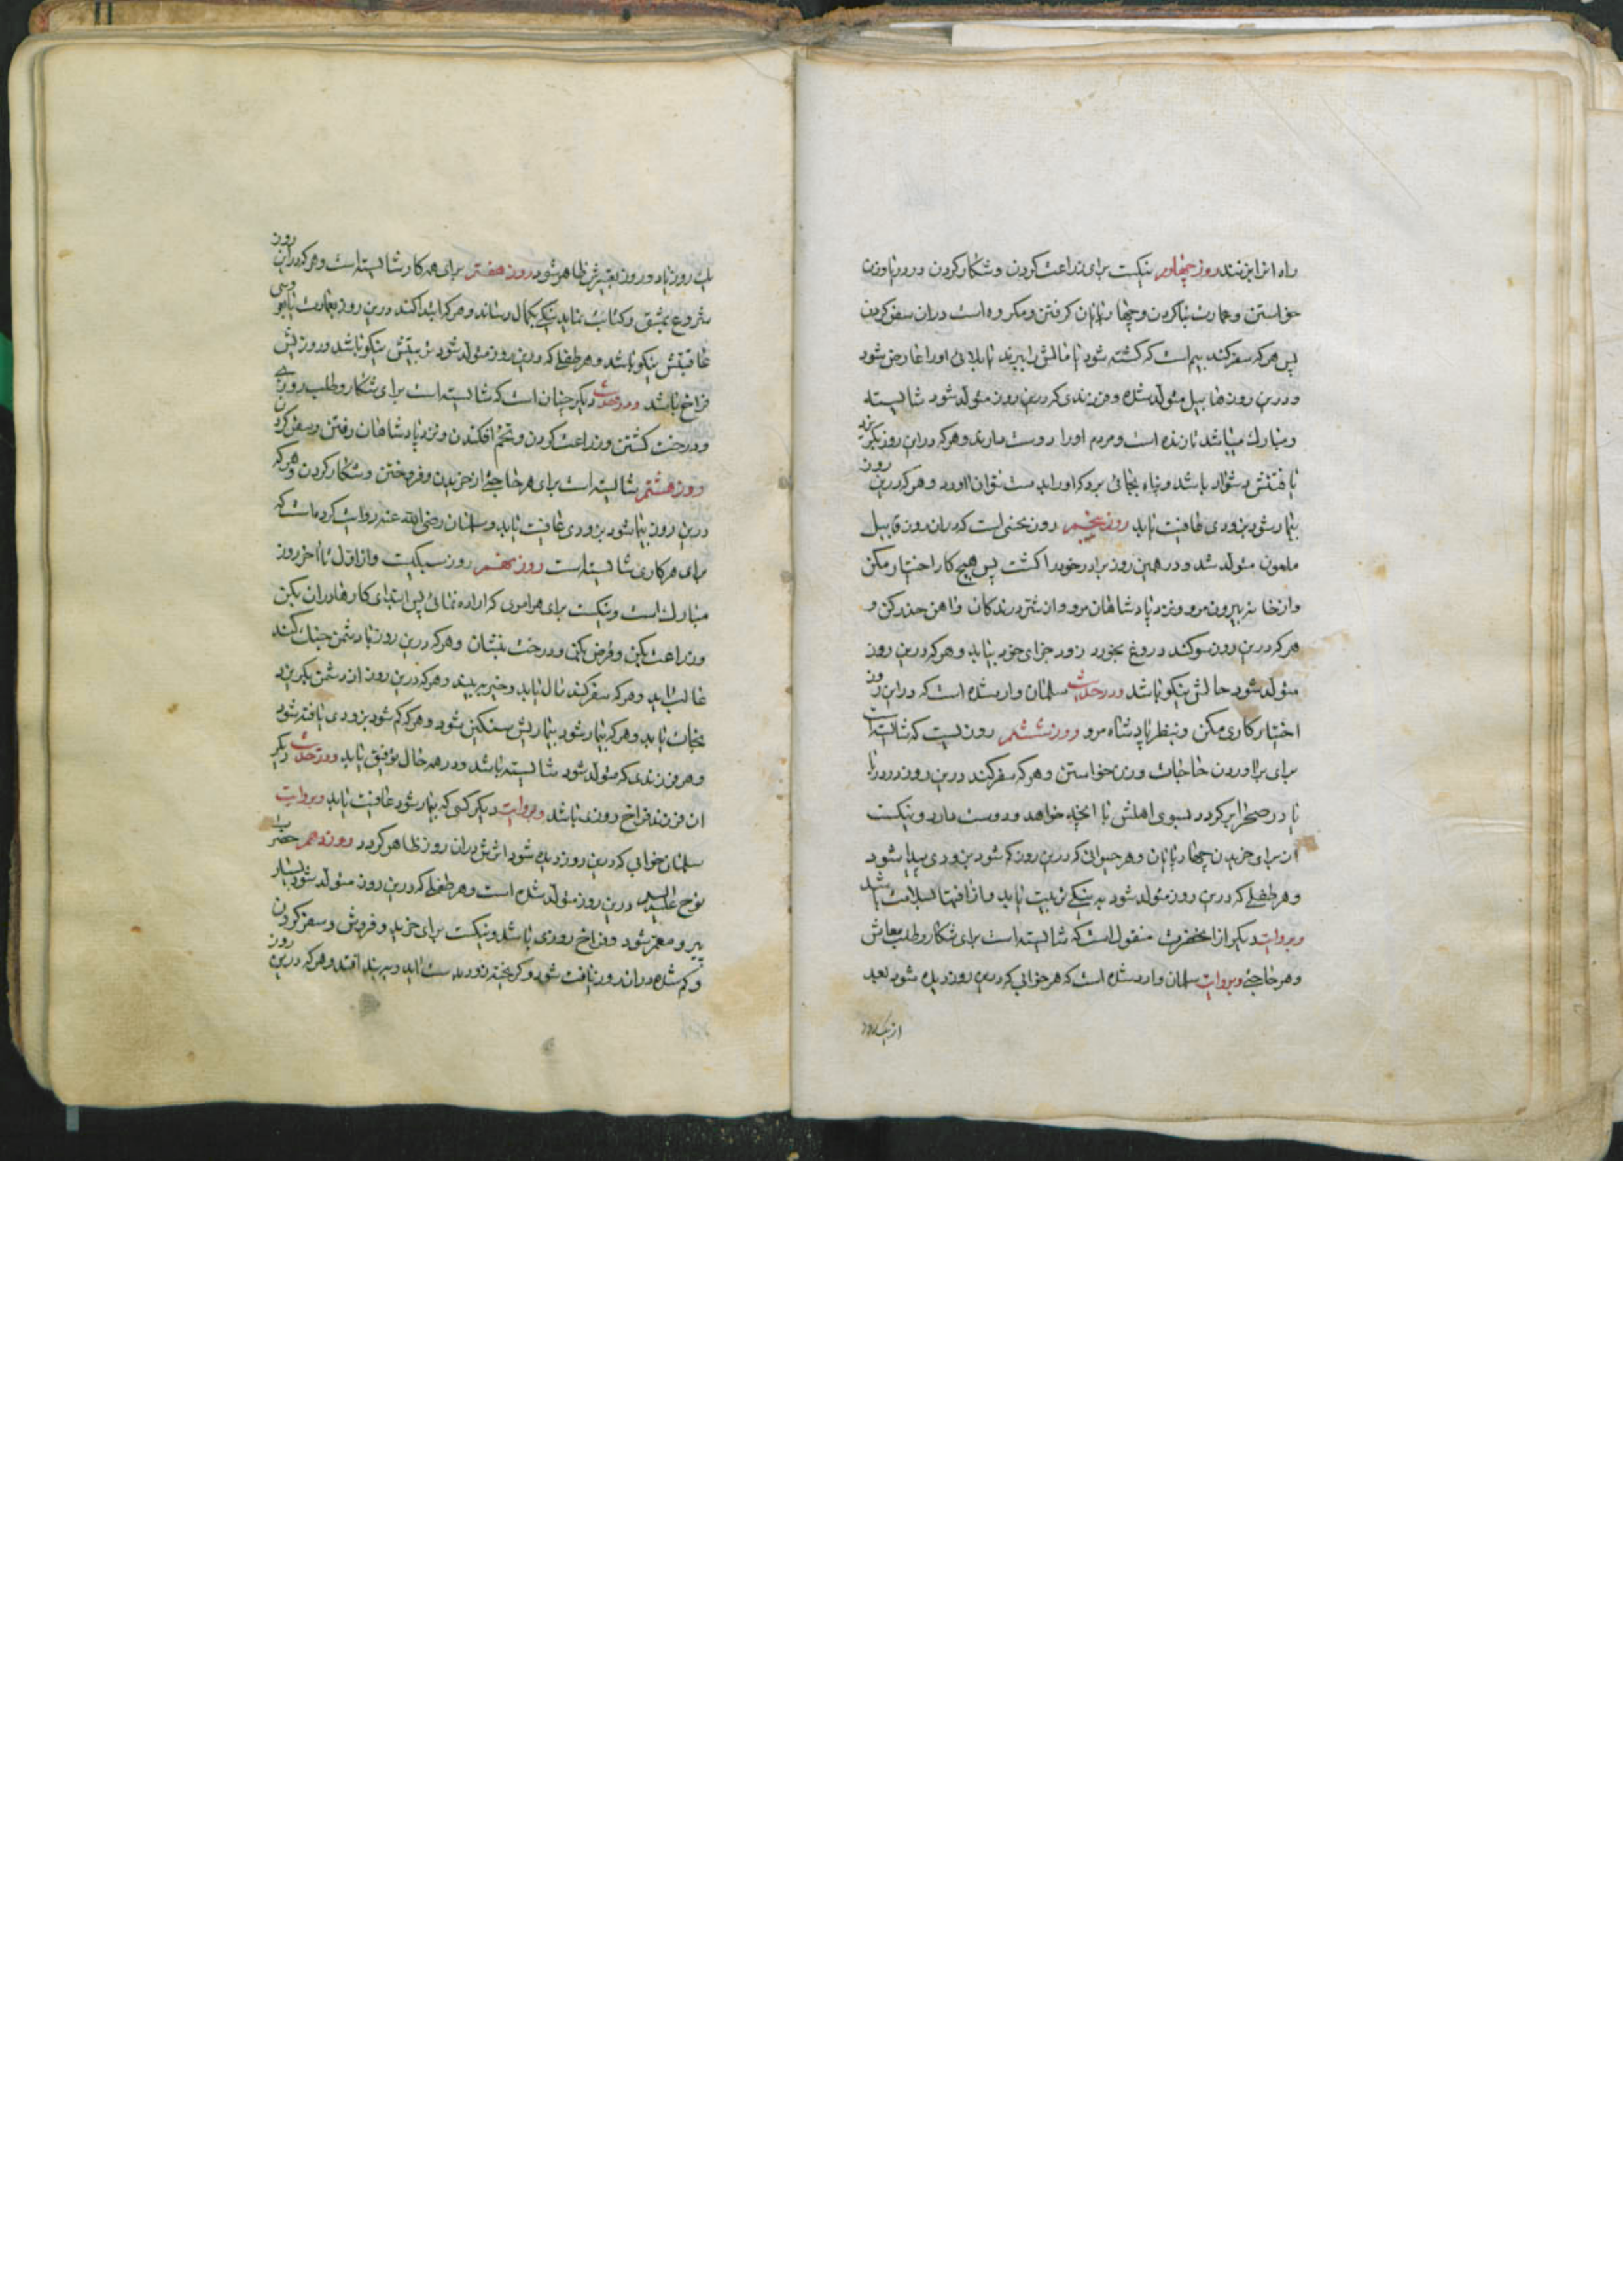 راه از این نزند روز چهارم نیکست برای زراعت کردن و شکار کردن و در دنیا وزن
خواستن و عمارت بنا کردن و چهار پایان گرفتن و مکروه است دران سفر کردن
پس هر که سفر کند بیم است که کشته شود یا مالش را ببرند یا بلائی او را عارض شود
و درین روز هابیل متولد شده و فرزندی که درین روز متولد شود شایسته
و مبارک میباشد تا زنده است و مردم او را دوست دارند و هر که دراین روز بگریزد
یافتنش دشوار باشد و پناه بجائی برد که او را بدست نتوان آورد و هر که درین روز
بیمار شود بزودی عافیت یابد روز پنجم روز نحسی است که دران روز قابیل
ملعون متولد شد و در همین روز برادر خود را کشت پس هیچ کار اختیار مکن
و از خانه بیرون مرو و نزد پادشاهان مرو و از شر درندکان و اهن حذر کن و
هر که درین روز سوکند دروغ بخورد زود جزای خود بیابد و هر که درین روز
متولد شود حالش نیکو باشد و در حدیث سلمان وارد شده است که دراین روز
اختیار کاری مکن و بنظر پادشاه مرو روز ششم روزیست که شایسته است
برای براوردن حاجات و زن خواستن و هر که سفر کند درین روز در دریا
یا در صحرا برکردد بسوی اهلش با انچه خواهد و دوست دارد و نیکست
از برای خریدن چهار پایان و هر حیوانی که درین روز کم شود بزودی پیدا شود
و هر طفلی که درین روز متولد شود به نیکی تربیت یابد و از افتها بسلامت باشد
و بروایت دیکر از انحضرت منقول است که شایسته است برای شکار و طلب معاش
و هر حاجتی و بروایت سلمان وارد شده است که هر خوابی که درین روز دیده شود بعد
از یک روز
یک روز یا دو روز تعبیرش ظاهر شود روز هفتم برای همه کار شایسته است و هر که دراین روز
شروع بمشق و کتابت نماید نیکی بکمال رساند و هر که ابتدا کند درین روز بعمارت یا بغرسی
عاقبتش نیکو باشد و هر طفلی که درین روز متولد شود تربیتش نیکو باشد و روزیش
فراخ باشد و در حدیث دیکر چنان است که شایسته است برای شکار و طلب روزی
و درخت کشتن و زراعت کردن و تخم افکندن و نزد پادشاهان رفتن و سفر کردن
روز هشتم شایسته است برای هر حاجتی از خریدن و فروختن و شکار کردن و هر که
درین روز بیمار شود بزودی عافیت یابد و سلمان رضی الله عنه روایت کرده است که
برای هر کاری شایسته است روز نهم روز سبکیست و از اول تا اخر روز
مبارک است و نیکست برای هر امری که اراده نمائی پس ابتدای کارها دران بکن
و زراعت بکن و قرض بکن و درخت بنشان و هر که درین روز با دشمن جنک کند
غالب اید و هر که سفر کند مال یابد و خیر ببیند و هر که درین روز از دشمن بکریزد
نجات یابد و هر که بیمار شود بیماریش سنکین شود و هر که کم شود بزودی یافته شود
و هر فرزندی که متولد شود شایسته باشد و در همه حال توفیق یابد و در حدیث دیکر
ان فرزند فراخ روزی باشد و بروایت دیکر کسی که بیمار شود عافیت یابد و بروایت
سلمان خوابی که درین روز دیده شود اثرش دران روز ظاهر کردد روز دهم حضرت
نوح علیه السلام درین روز متولد شده است و هر طفلی که درین روز متولد شود بسیار
پیر و معمر شود و فراخ روزی باشد و نیکست برای خرید و فروش و سفر کردن
و کم شده دران روز یافت شود و کریخته زود بدست اید و به بند افتد و هر که درین روز